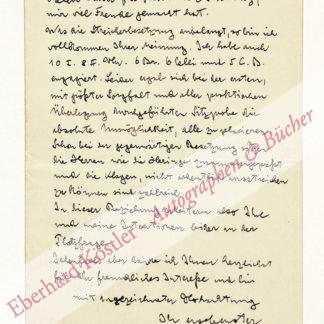 mir viel Freude gemacht hat.
Was die Streicherbesetzung anbelangt, so bin ich
vollkommen Ihrer Meinung. Ich habe auch
10 I. 8 II. Viol. 6 Br. 6 Celli und 5 C.B.
engagiert. Leider ergab sich bei der ersten,
mit größter Sorgfalt und aller praktischen
Überlegung durchgeführten Sitzprobe die
absolute Unmöglichkeit, alle zu placieren.
Schon bei der gegenwärtigen Besetzung sitzen
die Herren wie die Heringe zusammengepreßt
und die Klagen, nicht ordentlich ausstreichen
zu können sind zahlreich.
In dieser Beziehung scheitern also Ihre
und meine Intentionen leider an der
Platzfrage.
ich Ihnen herzlichst
für Ihr freundliches Interesse und bin
mit ausgezeichneter Hochachtung
Ihr ergebenster
Eberhard Köstler Autographen & Bücher